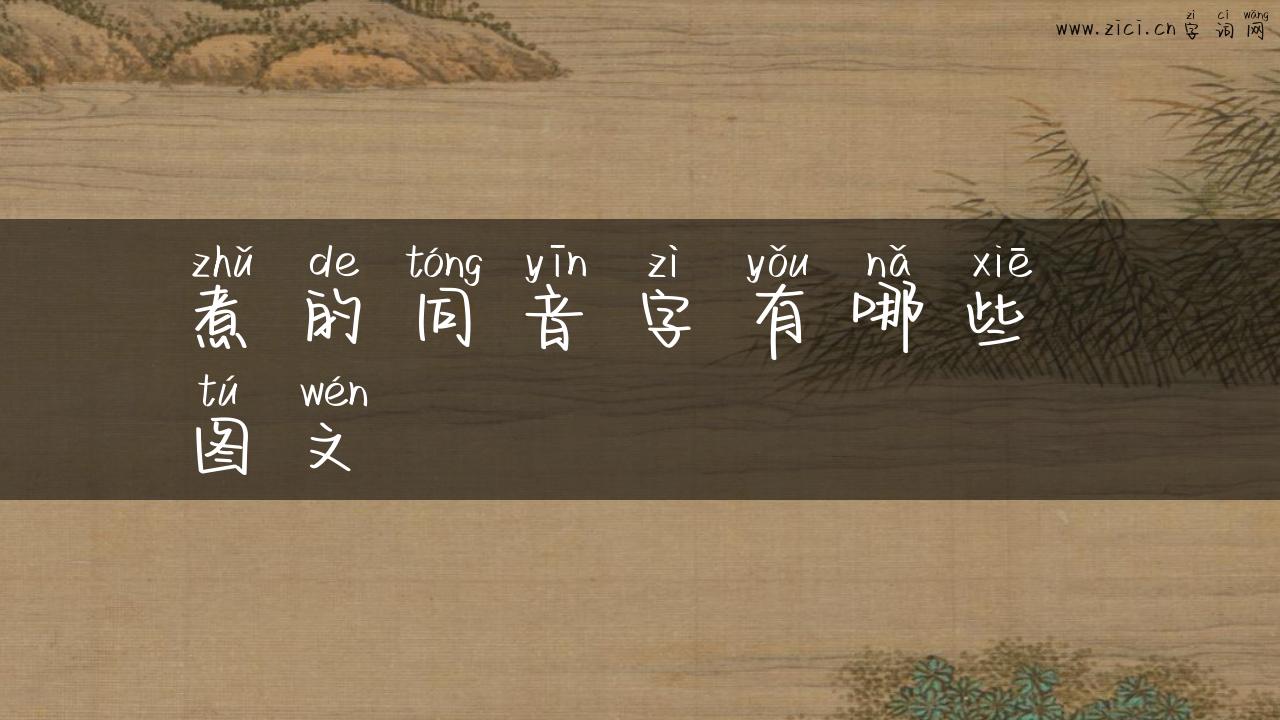 zì cí wǎng
www.zici.cn 字词网
zhǔ de tóng yīn zì yǒu nǎ xiē
煮的同音字有哪些
tú wén
图文